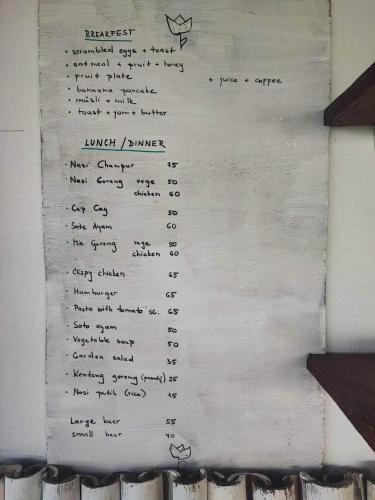 BREAKFEST
• scrambled eggs + toast
• oatmeal + fruit + honey
• fruit plate + juice + coffee
• bannana pancake
• müsli + milk
• toast + jam + butter
LUNCH / DINNER
• Nasi Champur 75
• Nasi Goreng vege 50
chicken 60
• Cap Cay 50
• Sate Ayam 60
• Mie Goreng vege 50
chicken 60
• Crispy chicken 65
• Hamburger 65
• Pasta with tomato sc. 65
• Soto ayam 50
• Vegetable soup 50
• Garden salad 35
• Kentang goreng 25
• Nasi putih (rice) 15
Large beer 55
small beer 40